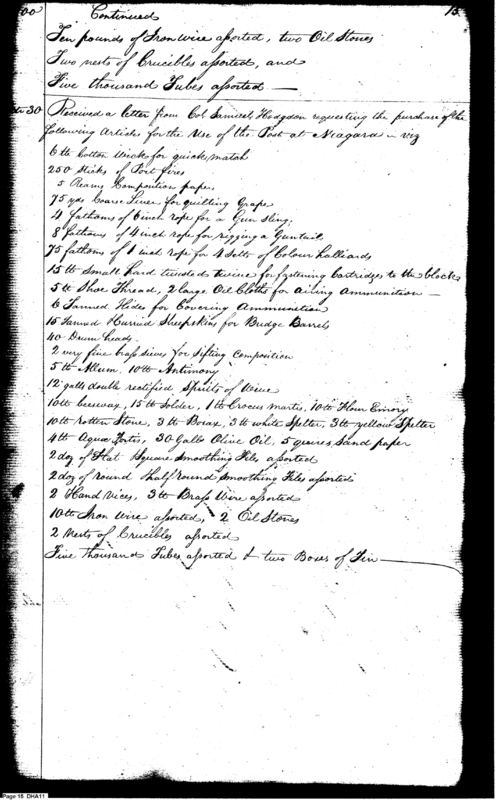 00 Continued 15
Ten pounds of Iron wire assorted, two Oil Stones
Two nests of Crucibles assorted, and
Five thousand Tubes assorted —
30 Received a letter from Col Samuel Hodgdon requesting the purchase of the
following Articles for the Use of the Post at Niagara — viz
6 lb Cotton Wick for quick match
250 Sticks of Port fires
5 Reams Composition paper
75 yds Coarse Linen for quilting Grape
4 fathoms of 6 inch rope for a Gun Sling.
8 fathoms of 4 inch rope for rigging a Gun tail
75 fathoms of 1 inch rope for 4 setts of Colour halliards
15 lb Small hard twisted twine for fastening Cartridges to the blocks
5 lb Shoe Thread, 2 large Oil Cloths for airing ammunition —
6 Tanned Hides for Covering Ammunition
15 Tanned Sheepskins for Budge Barrels
40 Drum heads
2 very fine brass sieves for Sifting Composition
5 lb Allum. 10 lb Antimony
12 galls double rectified Spirits of Wine
10 lb beeswax, 15 lb Solder, 1 lb Crocus martis, 10 lb flour Emory
10 lb rotten Stone, 3 lb Borax, 3 lb white Spelter, 3 lb yellow Spelter
4 lb Aqua Fortis, 30 Galls Olive Oil, 5 quires Sand paper
2 doz of Flat Square Smoothing Files assorted
2 doz of round & half round smoothing Files assorted
2 Hand Vices, 3 lb Brass Wire assorted
10 lb Iron wire assorted, 2 Oil Stones
2 nests of Crucibles assorted
Five thousand Tubes assorted & two Boxes of Tin
Page 15 DHA11